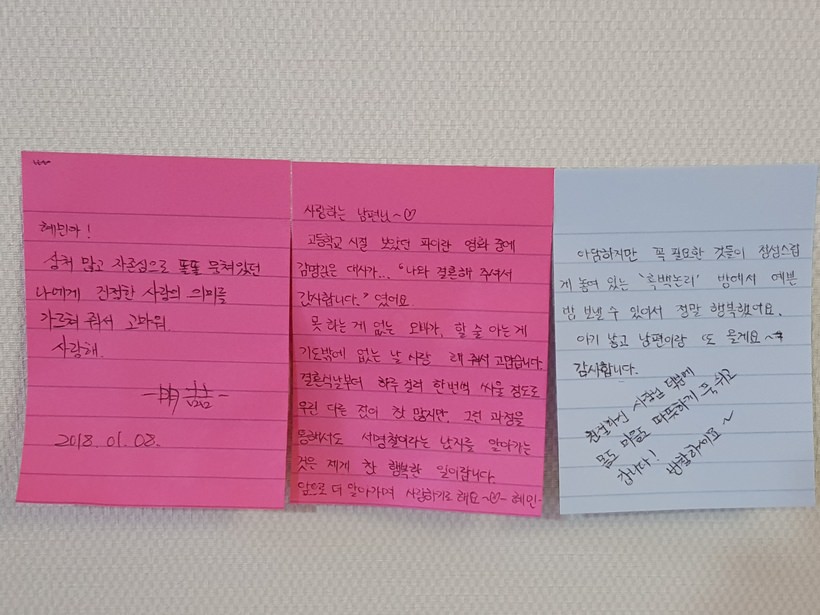 혜민아!
상처 많고 자존심으로 똘똘 뭉쳐있던
나에게 진정한 사랑의 의미를
가르쳐 줘서 고마워.
사랑해.
-明喆-
2018.01.08.
사랑하는 남편님~♡
고등학교 시절 보았던 파이란 영화 중에
감명깊은 대사가... "나와 결혼해 주셔서
감사합니다." 였어요.
못 하는 게 없는 오빠가, 할 줄 아는 게
기도밖에 없는 날 사랑해 줘서 고맙습니다.
결혼식날부터 하루 걸러 한번씩 싸울 정도로
우린 다른 점이 참 많지만, 그런 과정을
통해서도 서명철이라는 남자를 알아가는
것은 제게 참 행복한 일이랍니다.
앞으로 더 알아가며 사랑하기로 해요~♡ -혜민-
아담하지만 꼭 필요한 것들이 정성스럽
게 놓여 있는 '흑백논리' 방에서 예쁜
밤 보낼 수 있어서 정말 행복했어요.
아기 낳고 남편이랑 또 올게요~
감사합니다.
친절하신 사장님 덕분에
몸도 마음도 따뜻하게 푹 쉬고
갑니다! 번창하이요~